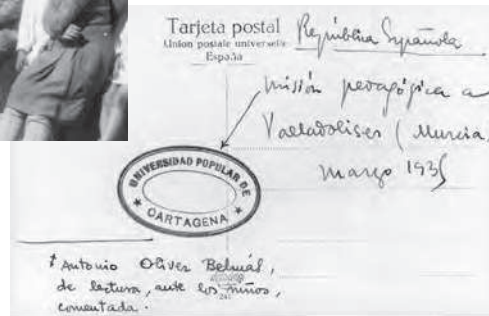 Tarjeta postal
Union postale universelle
España
República Española
misión pedagógica a
Valladolises (Murcia,
marzo 1935
UNIVERSIDAD POPULAR DE
CARTAGENA
Antonio Oliver Belmás,
de lectura, ante los niños,
comentada.